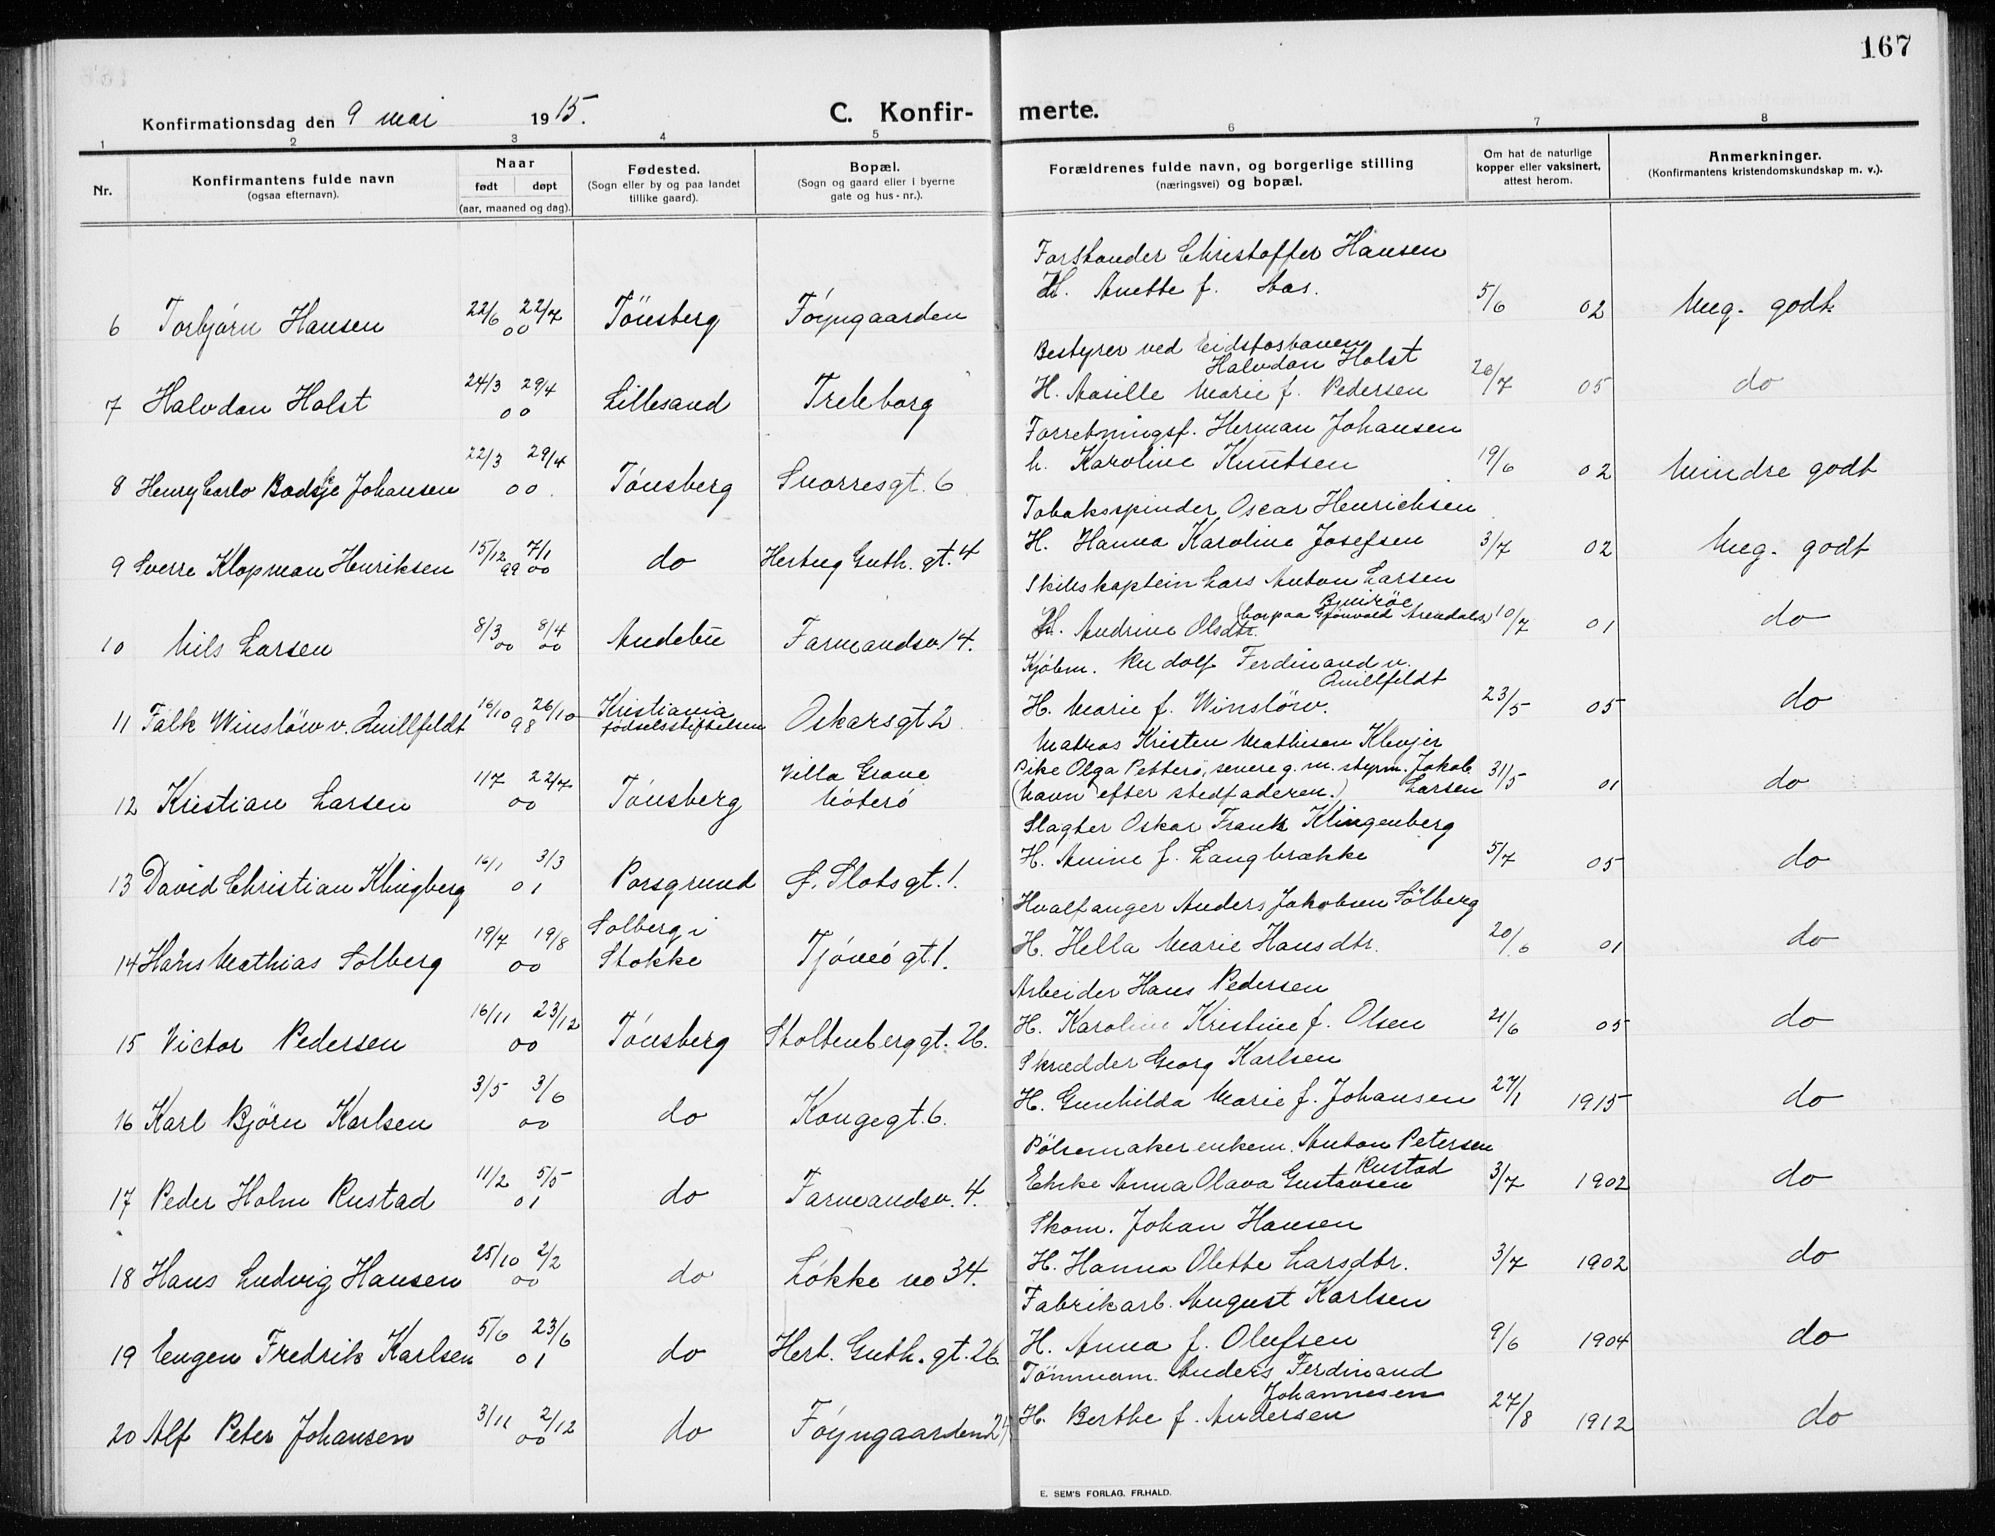 167
Konfirmationsdag den 9 mai 1915.
C. Konfirmerte.
1 2 3 4 5 6 7 8
Nr.
Konfirmantens fulde navn
(ogsaa efternavn).
Naar
født døpt
(aar, maaned og dag).
Fødested.
(Sogn eller by og paa landet
tillike gaard).
Bopæl.
(Sogn og gaard eller i byerne
gate og hus-nr.).
Forældrenes fulde navn, og borgerlige stilling
(næringsvei) og bopæl.
Om hat de naturlige
kopper eller vaksinert,
attest herom.
Anmerkninger.
(Konfirmantens kristendomskundskap m. v.).
Forstander Christoffer Hansen
H. Anette f. Aas.
6 Torbjørn Hansen 22/6 22/7 00 Tönsberg Föyngaarden 5/6 02 Meg. godt
Bestyrer ved
Halvdan Holst
7 Halvdan Holst 24/3 29/4 00 Lillesand Treleborg H. Aasille Marie f. Pedersen 26/7 05 do
Forretningsf. Herman Johansen
h. Karoline Knutsen
8 Henry Carlo Johansen 22/3 29/4 00. Tönsberg Snorresgt. 6 19/6 02 Mindre godt
Tobaksspinder Oscar Henrichsen
H. Hanna Karoline Josefsen
9 Sverre Klopman Henriksen 15/12 99 7/1 00 do Hertug Guth. gt. 4 3/7 02 Meg. godt
Skibskaptein Lars Anton Larsen
H. Andrine Olsdtr.
10 Nils Larsen 8/3 00 8/4 00 Andebu Farmandsv. 14. 10/7 01 do
Kjöbm. Rudolf Ferdinand v.
Quillfeldt
11 Falk Winslöw v. Quillfeldt 16/10 26/10 98 Kristiania fødselsstiftelsen Oskarsgt 2. H. Marie f. Winslöw. 23/5 05 do
Matros Kristen Mathisen Klevjer
Pike Olga Petterö, senere g. m. styrm. Jakob
(Navn efter stedfaderen.) Larsen
12 Kristian Larsen 1/7 22/7 00 Tönsberg Villa Grane Nöterö 31/5 01 do
Slagter Oskar Frank Klingenberg
H. Anine f. Langbrække
13 David Christian Klingberg 16/1 3/3 01 Porsgrund f. Slotsgt. 1. 5/7 05 do
Hvalfanger Anders Jakobsen Sölberg
H. Hella Marie Hansdtr.
14 Hans Mathias Solberg 19/7 19/8 00 Solberg i Stokke Tjömö gt 1. 20/6 01 do
Arbeider Hans Pedersen
H. Karoline Kristine f. Olsen
15 Victor Pedersen 16/11 23/12 00 Tönsberg Stoltenberggt. 26. 21/6 05 do
Skrædder Georg Karlsen
H. Gunhilda Marie f. Johansen
16 Karl Björn Karlsen 3/5 3/6 00 do Kongegt. 6. 27/1 1915 do
Pölsemaker enkem. Anton Petersen
Rustad
Enke Anna Olava Gustavsen
17 Peder Holm Rustad 11/2 5/5 01 do Farmandsv. 4. 3/7 1902 do
Skom. Johan Hansen
H. Hanna Olette Larsdtr.
18 Hans Ludvig Hansen 25/10 2/2 00 do Lökke no 34. 3/7 1902 do
Fabrikarb. August Karlsen
H. Anna f. Olufsen
19 Eugen Fredrik Karlsen 5/6 23/6 01 do Hert. Guth. gt. 26 9/6 1904 do
Tömmerm. Anders Ferdinand
Johannesen
20 Alf Peter Johansen 3/11 2/12 00 do Föyngaarden H. Berthe f. Andersen 27/8 1912 do
E. SEM'S FORLAG. FR.HALD.